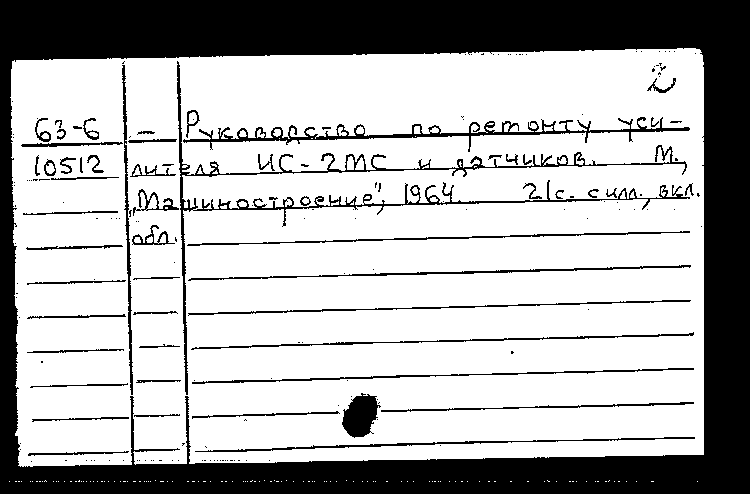 2
63-6 — Руководство по ремонту уси-
10512 лителя ИС-2МС и датчиков. М.,
„Машиностроение", 1964. 21с. с илл., вкл.
обл.